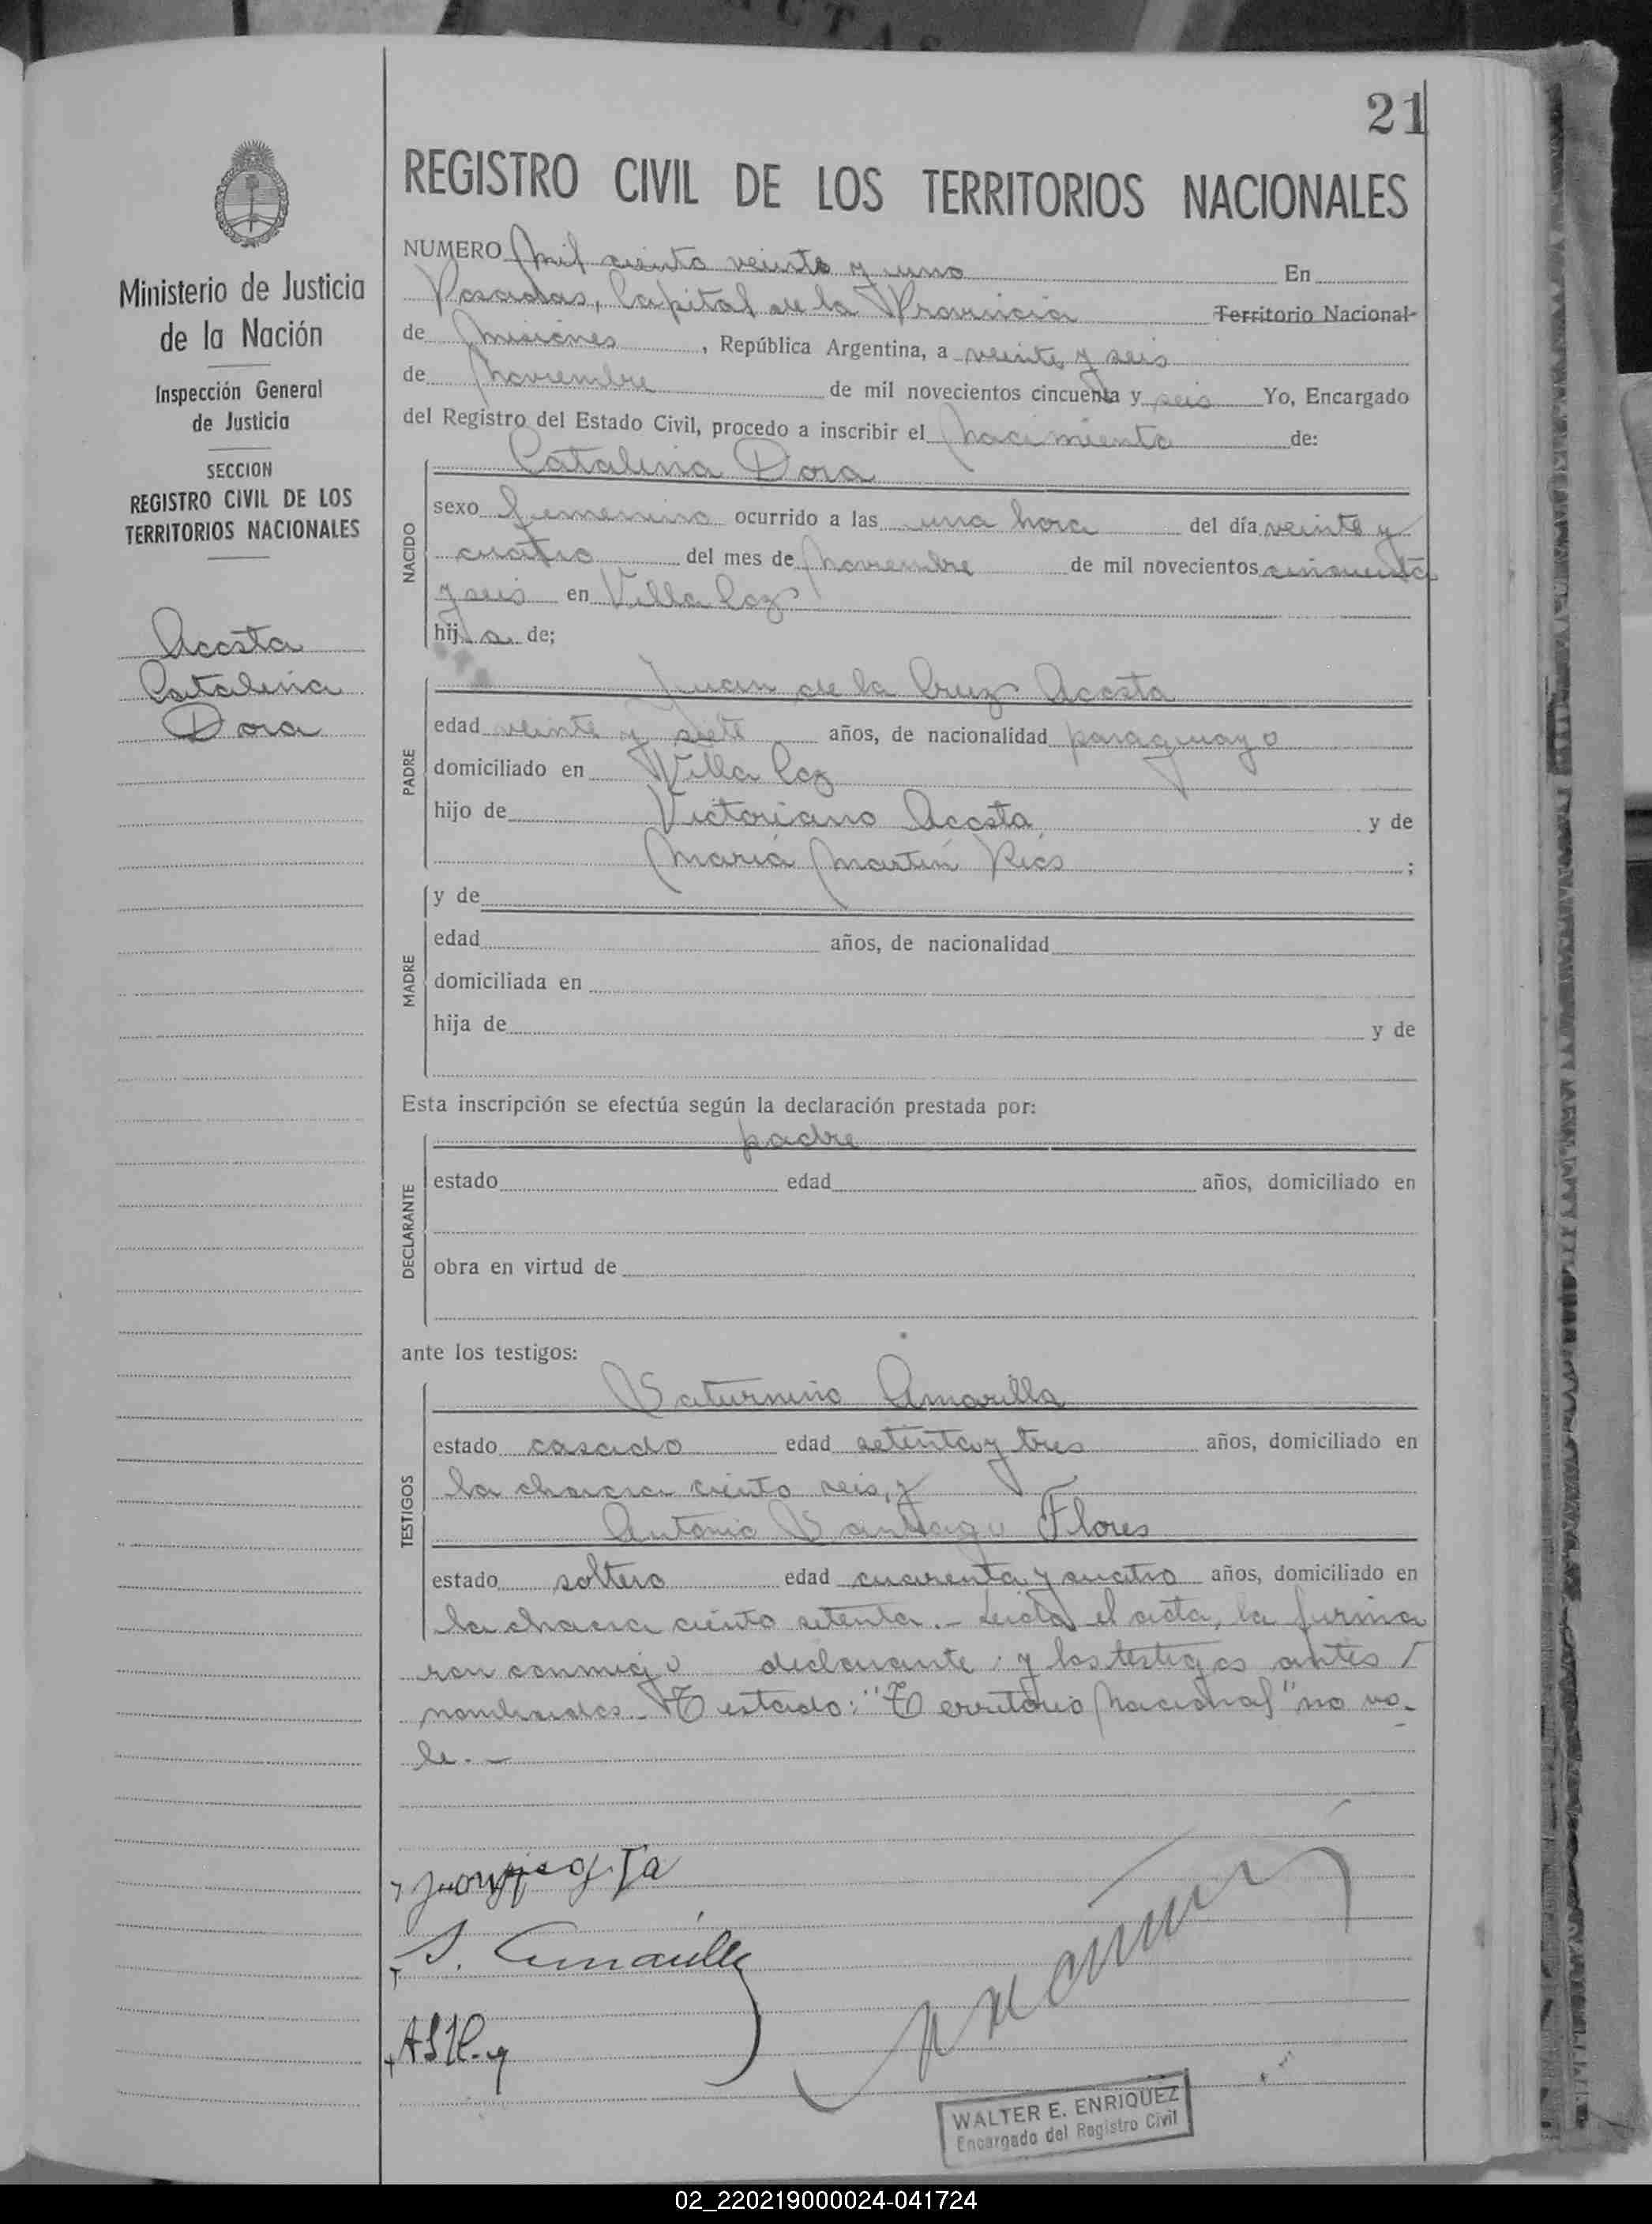 21
REGISTRO CIVIL DE LOS TERRITORIOS NACIONALES
Ministerio de Justicia
de la Nación
Inspección General
de Justicia
SECCION
REGISTRO CIVIL DE LOS
TERRITORIOS NACIONALES
Acosta
Catalina
Dora
NUMERO Mil ciento veinte y uno En
Posadas, Capital de la Provincia Territorio Nacional
de Misiones, República Argentina, a veinte y seis
de Noviembre de mil novecientos cincuenta y seis Yo, Encargado
del Registro del Estado Civil, procedo a inscribir el Nacimiento de:
NACIDO
Catalina Dora
sexo femenino ocurrido a las una hora del día veinte y
cuatro del mes de Noviembre de mil novecientos cincuenta
y seis en Villa Coz
hija de;
PADRE
Juan de la Cruz Acosta
edad veinte y siete años, de nacionalidad paraguayo
domiciliado en Villa Coz
hijo de Victoriano Acosta y de
María Martín Rios ;
MADRE
y de
edad años, de nacionalidad
domiciliada en
hija de y de
Esta inscripción se efectúa según la declaración prestada por:
DECLARANTE
padre
estado edad años, domiciliado en
obra en virtud de
ante los testigos:
TESTIGOS
Saturnino Amarilla
estado casado edad setenta y tres años, domiciliado en
la chacra ciento seis, y
Antonio Santiago Flores
estado soltero edad cuarenta y cuatro años, domiciliado en
la chacra ciento setenta.- Leida el acta, la firma
ron conmigo declarante y los testigos antes /
nombrados.- Testado: "Territorio Nacional" no va-
le.-
S. Amarilla
WALTER E. ENRIQUEZ
Encargado del Registro Civil
02_220219000024-041724